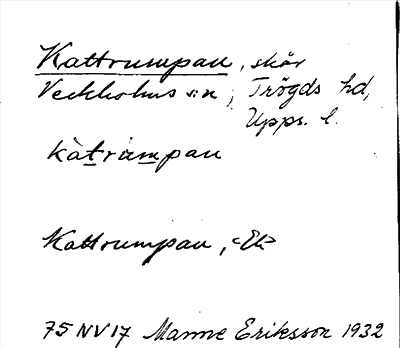 Kattrumpan, skär
Veckholms sn, Trögds hd,
Upps. l.
kàtrùmpan
Kattrumpan, <Ek>
75 NV 17 Manne Eriksson 1932